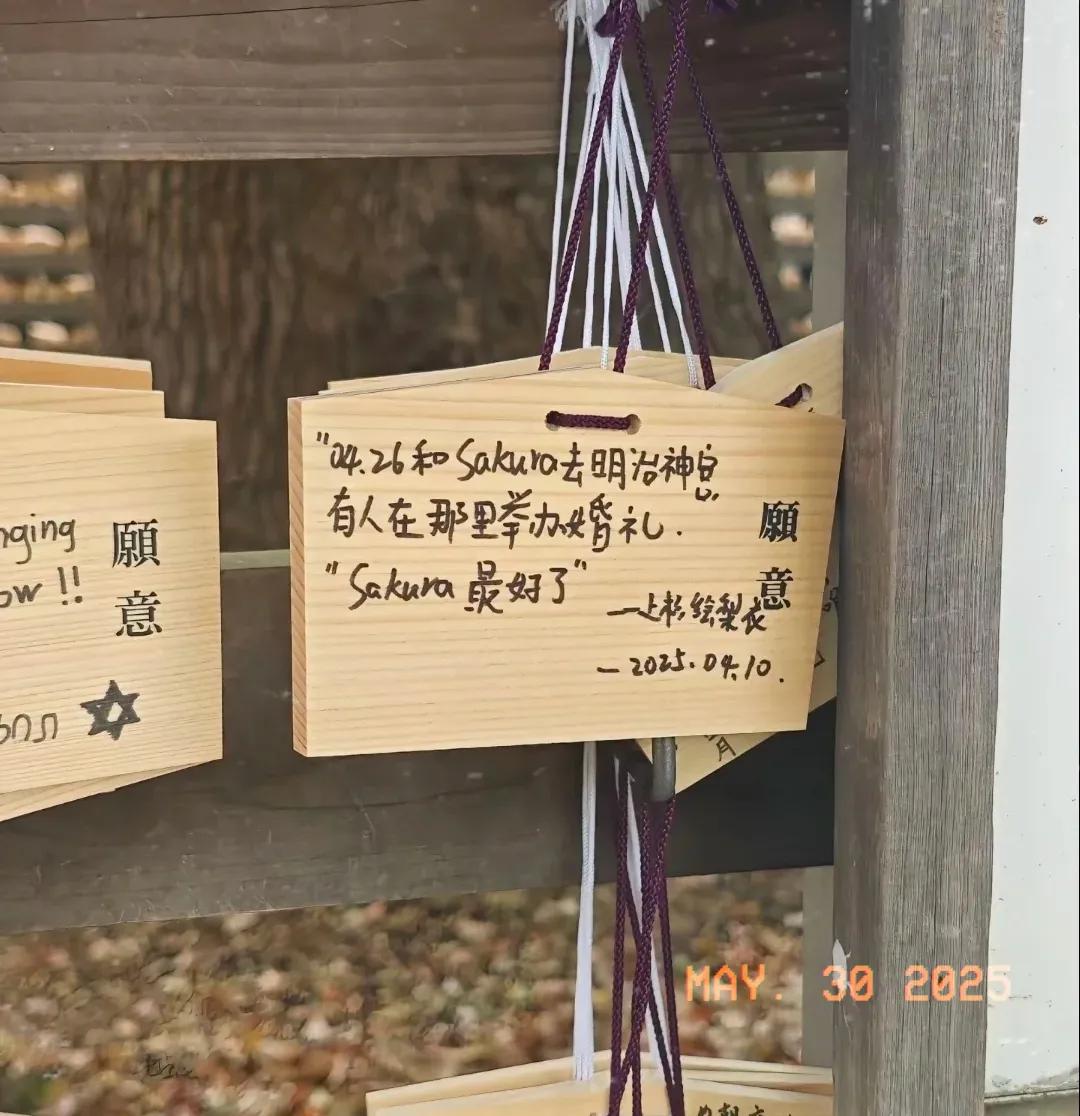 "04.26和Sakura去明治神宫
有人在那里举办婚礼.
"Sakura最好了"
—上杉绘梨衣
—2025.04.10.
願意
nging
ow !!
願意
月
MAY. 30 2025